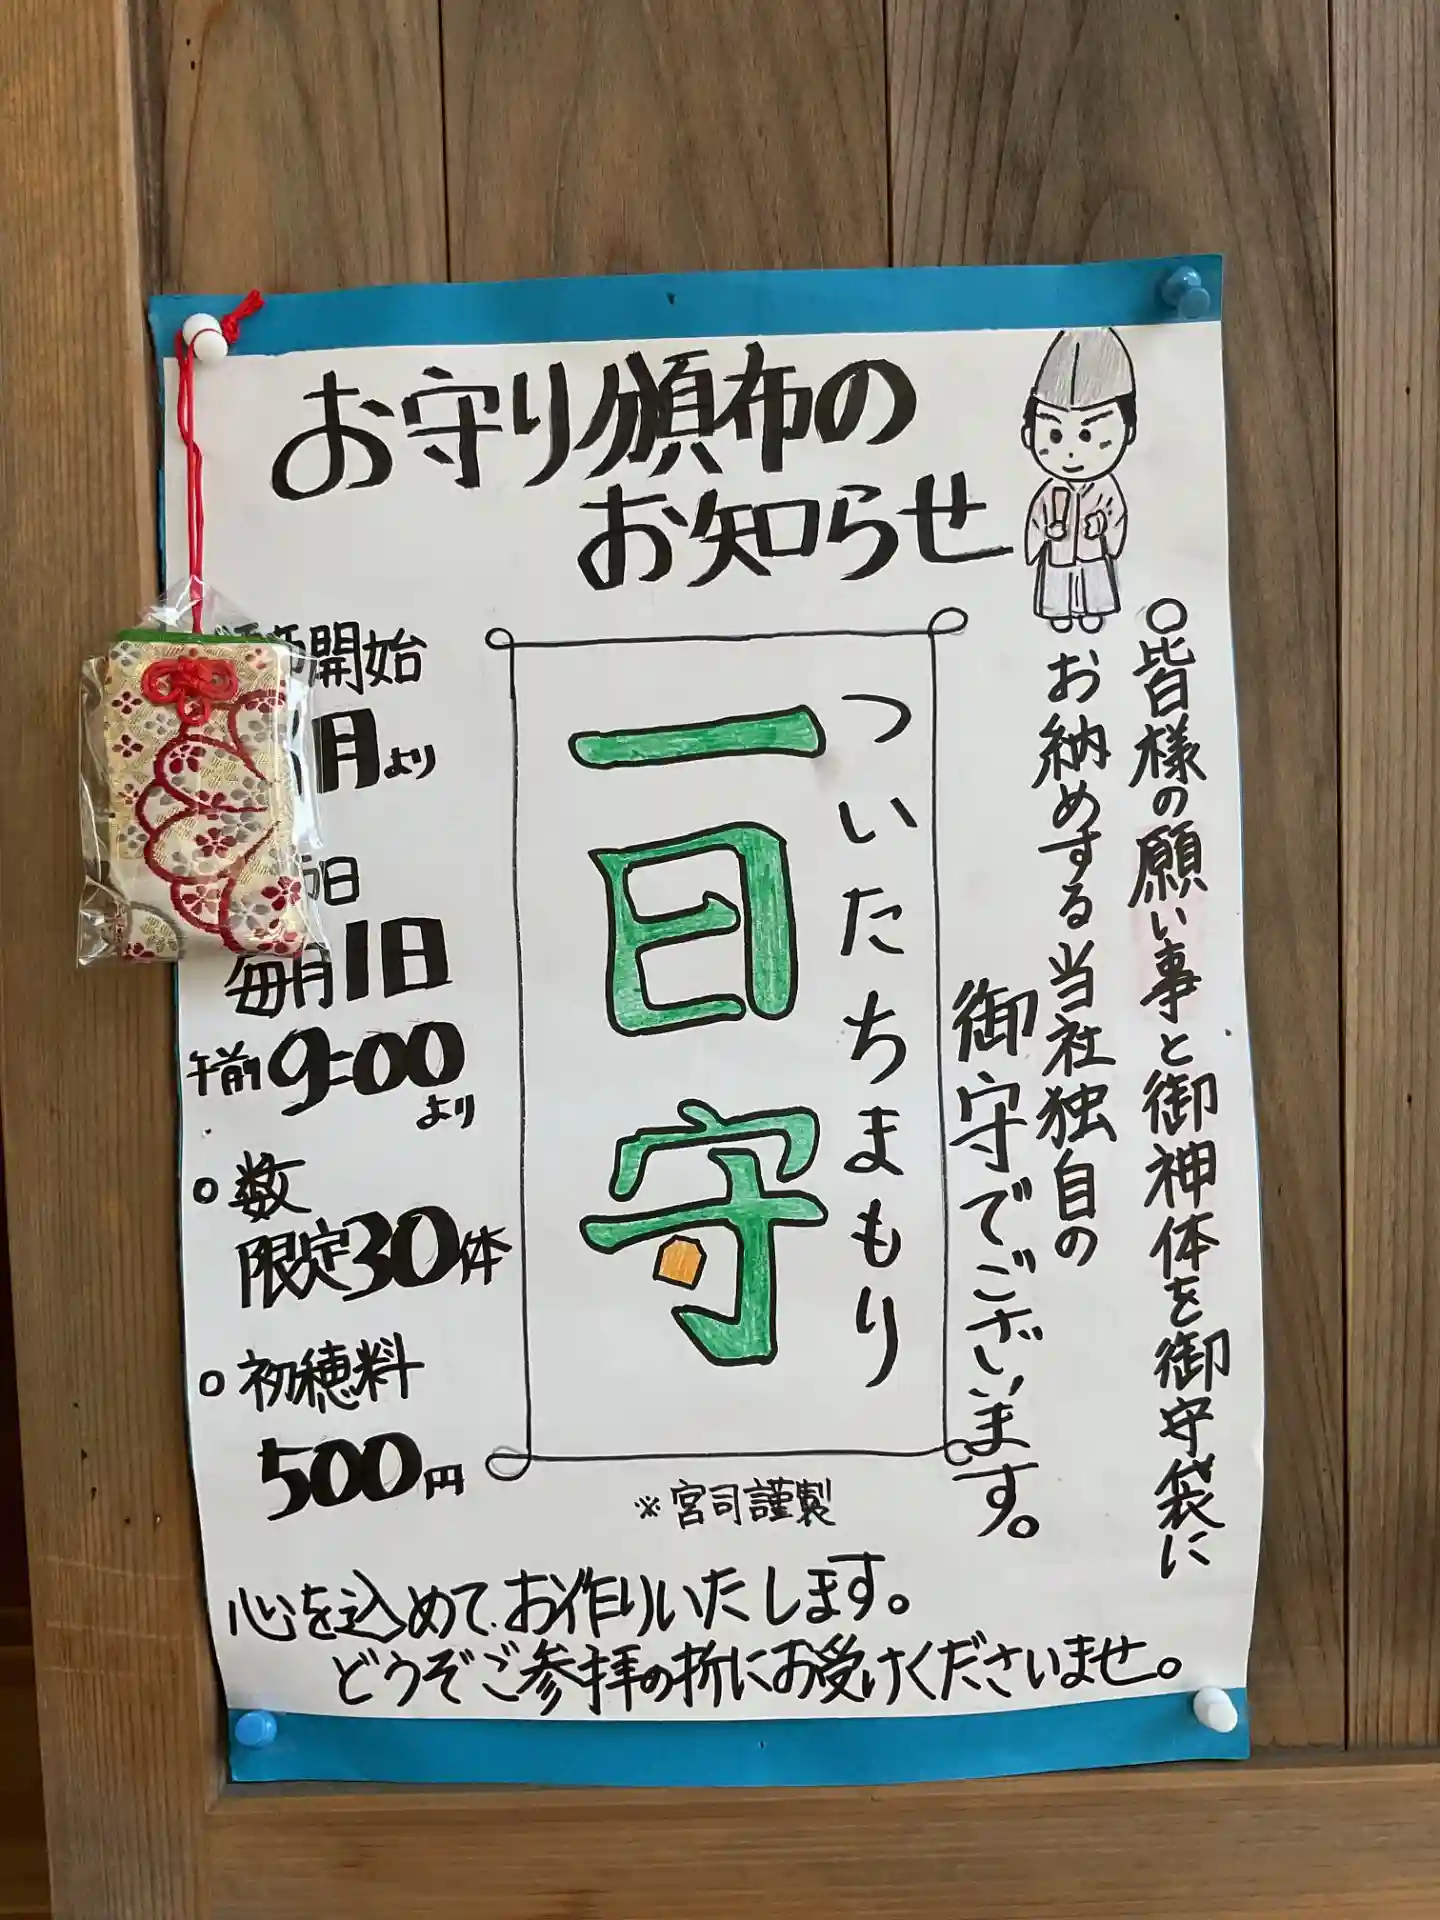 お守り頒布の
お知らせ
○皆様の願い事と御神体を御守袋に
お納めする当社独自の
御守でございます。
ついたちまもり
一日守
※宮司謹製
開始
月より
日
毎月1日
午前9:00
より
○数
限定30体
○初穂料
500円
心を込めてお作りいたします。
どうぞご参拝の折にお受けくださいませ。